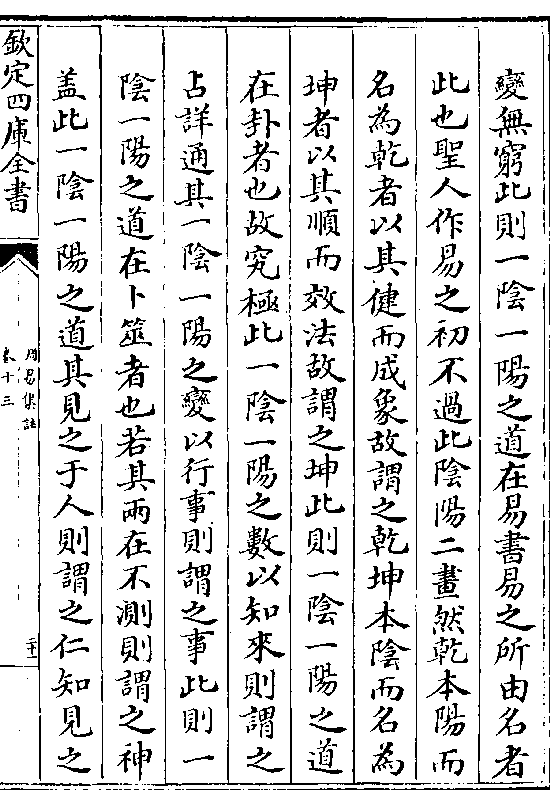 變無窮此則一陰一陽之道在易書易之所由名者
此也聖人作易之初不過此陰陽二畫然乾本陽而
名為乾者以其健而成象故謂之乾坤本陰而名為
坤者以其順而效法故謂之坤此則一陰一陽之道
在卦者也故究極此一陰一陽之數以知來則謂之
占詳通其一陰一陽之變以行事則謂之事此則一
陰一陽之道在卜筮者也若其兩在不測則謂之神
盖此一陰一陽之道其見之于人則謂之仁知見之
欽定四庫全書
周易集註
卷十三